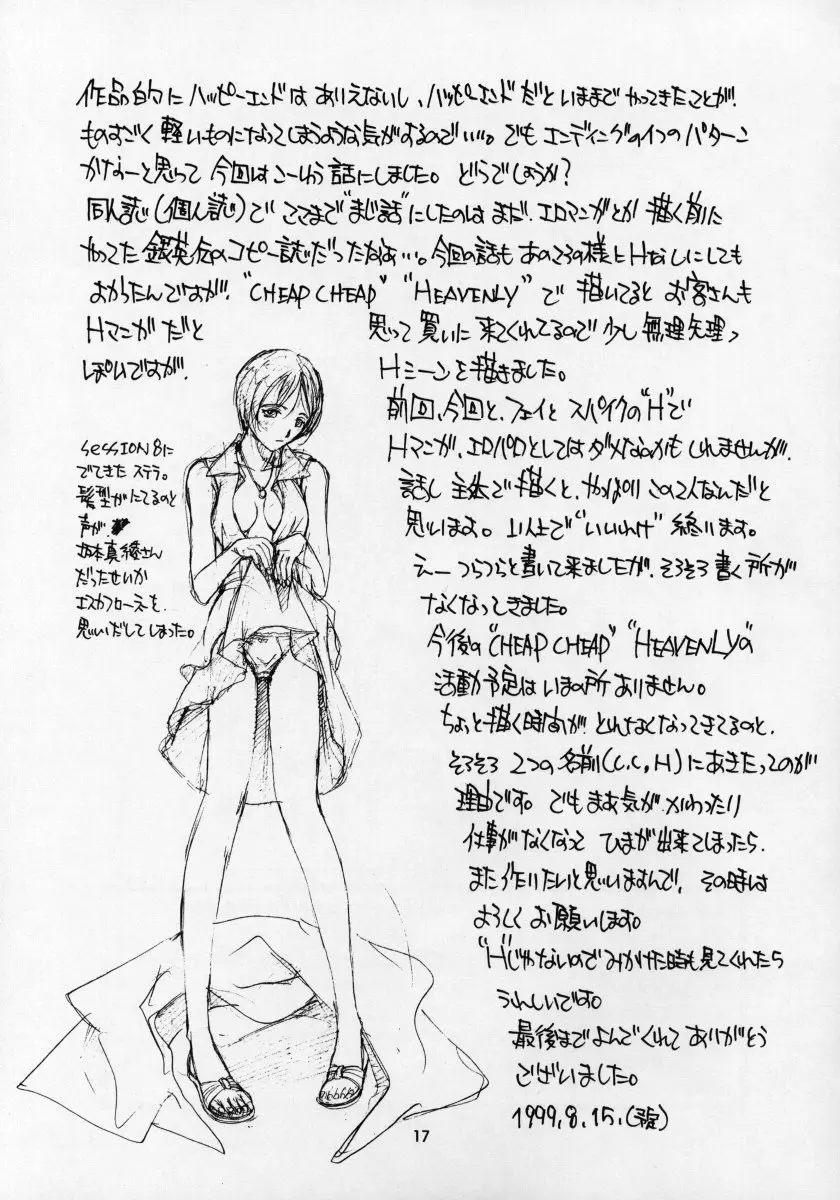 作品的にハッピーエンドはありえないし、ハッピーエンドだといままでやってきたことが、
ものすごく軽いものになってしまうような気がするので…。でもエンディングの1つのパターン
かなぁーと思って今回はこーいう話にしました。どうでしょうか?
同人誌(個人誌)でここまで"まじ話"にしたのはまだ、エロマンガとか描く前に
やってた銀英伝のコピー誌だったなぁ…。今回の話もあのころの様にHなしにしても
よかったんですが、"CHEAP CHEAP" "HEAVENLY"で描いてるとお客さんも
Hマンガだと思って買いに来てくれてるので少し無理矢理っ
ぽいですが、Hシーンを描きました。
前回、今回と、フェイとスパイクの"H"で
Hマンガ、エロパロとしてはダメなのかもしれませんが、
話し主体で描くと、やっぱりこの2人なんだと
思います。以上で"いいわけ"終ります。
えーつらつらと書いて来ましたが、そろそろ書く所が
なくなってきました。
今後の"CHEAP CHEAP" "HEAVENLY"の
活動予定はいまの所ありません。
ちょっと描く時間が、とれなくなってきてるのと、
そろそろ2つの名前(C.C,H)にあきたってのが
理由です。でもまぁ気がかわったり
仕事がなくなってひまが出来てしまったら、
また作りたいと思いますんで、その時は
よろしくお願いします。
"H"じゃないのでみかけた時も見てくれたら
うれしいです。
最後までよんでくれてありがとう
ございました。
1999.8.15.
SESSION8に
でてきたステラ。
髪型がにてるのと
声が、
坂本真綾さん
だったせいか
エスカフローネを、
思いだしてしまった。
17